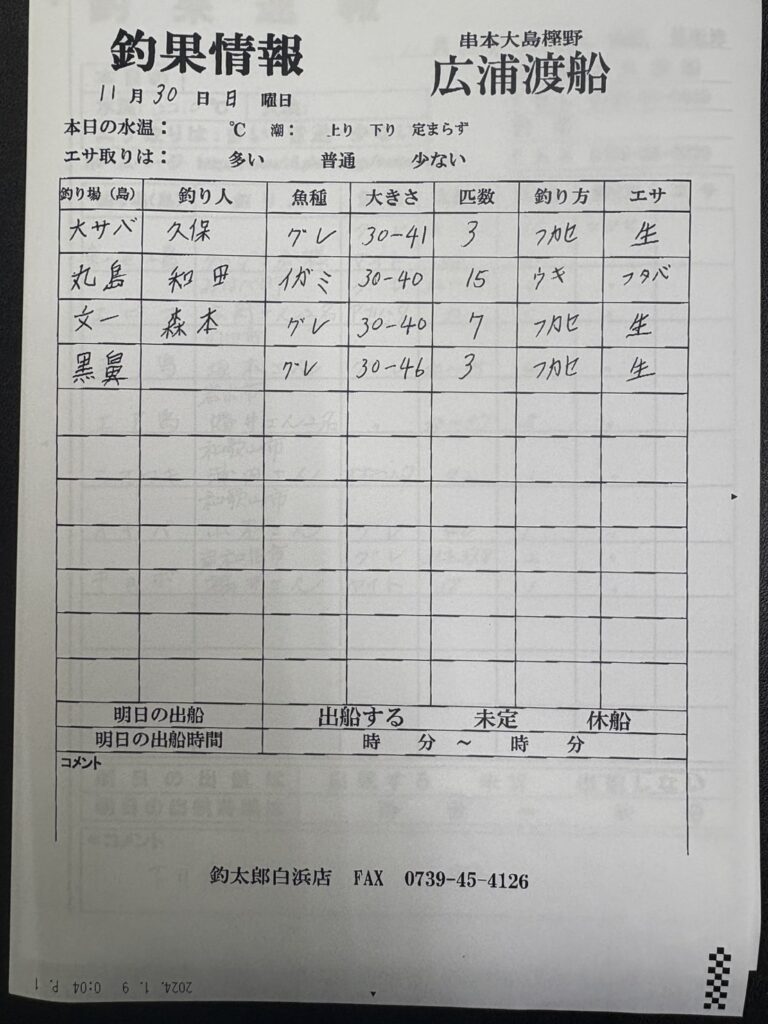 釣果情報
串本大島樫野
広浦渡船
11月30日日曜日
本日の水温： ℃ 潮： 上り 下り 定まらず
エサ取りは： 多い 普通 少ない
釣り場（島） 釣り人 魚種 大きさ 匹数 釣り方 エサ
大サバ 久保 グレ 30-41 3 フカセ 生
丸島 和田 イガミ 30-40 15 ウキ フタバ
文一 森本 グレ 30-40 7 フカセ 生
黒鼻 グレ 30-46 3 フカセ 生
明日の出船 出船する 未定 休船
明日の出船時間 時 分 ～ 時 分
コメント
釣太郎白浜店 FAX 0739-45-4126
2024. 1. 9 0:04 P. 1